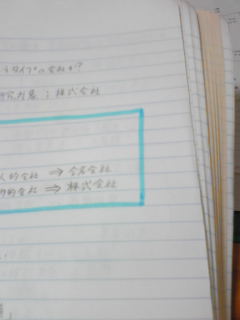 うタイプの会社か?
研究対象：株式会社
人的会社 ⇒ 合名会社
物的会社 ⇒ 株式会社